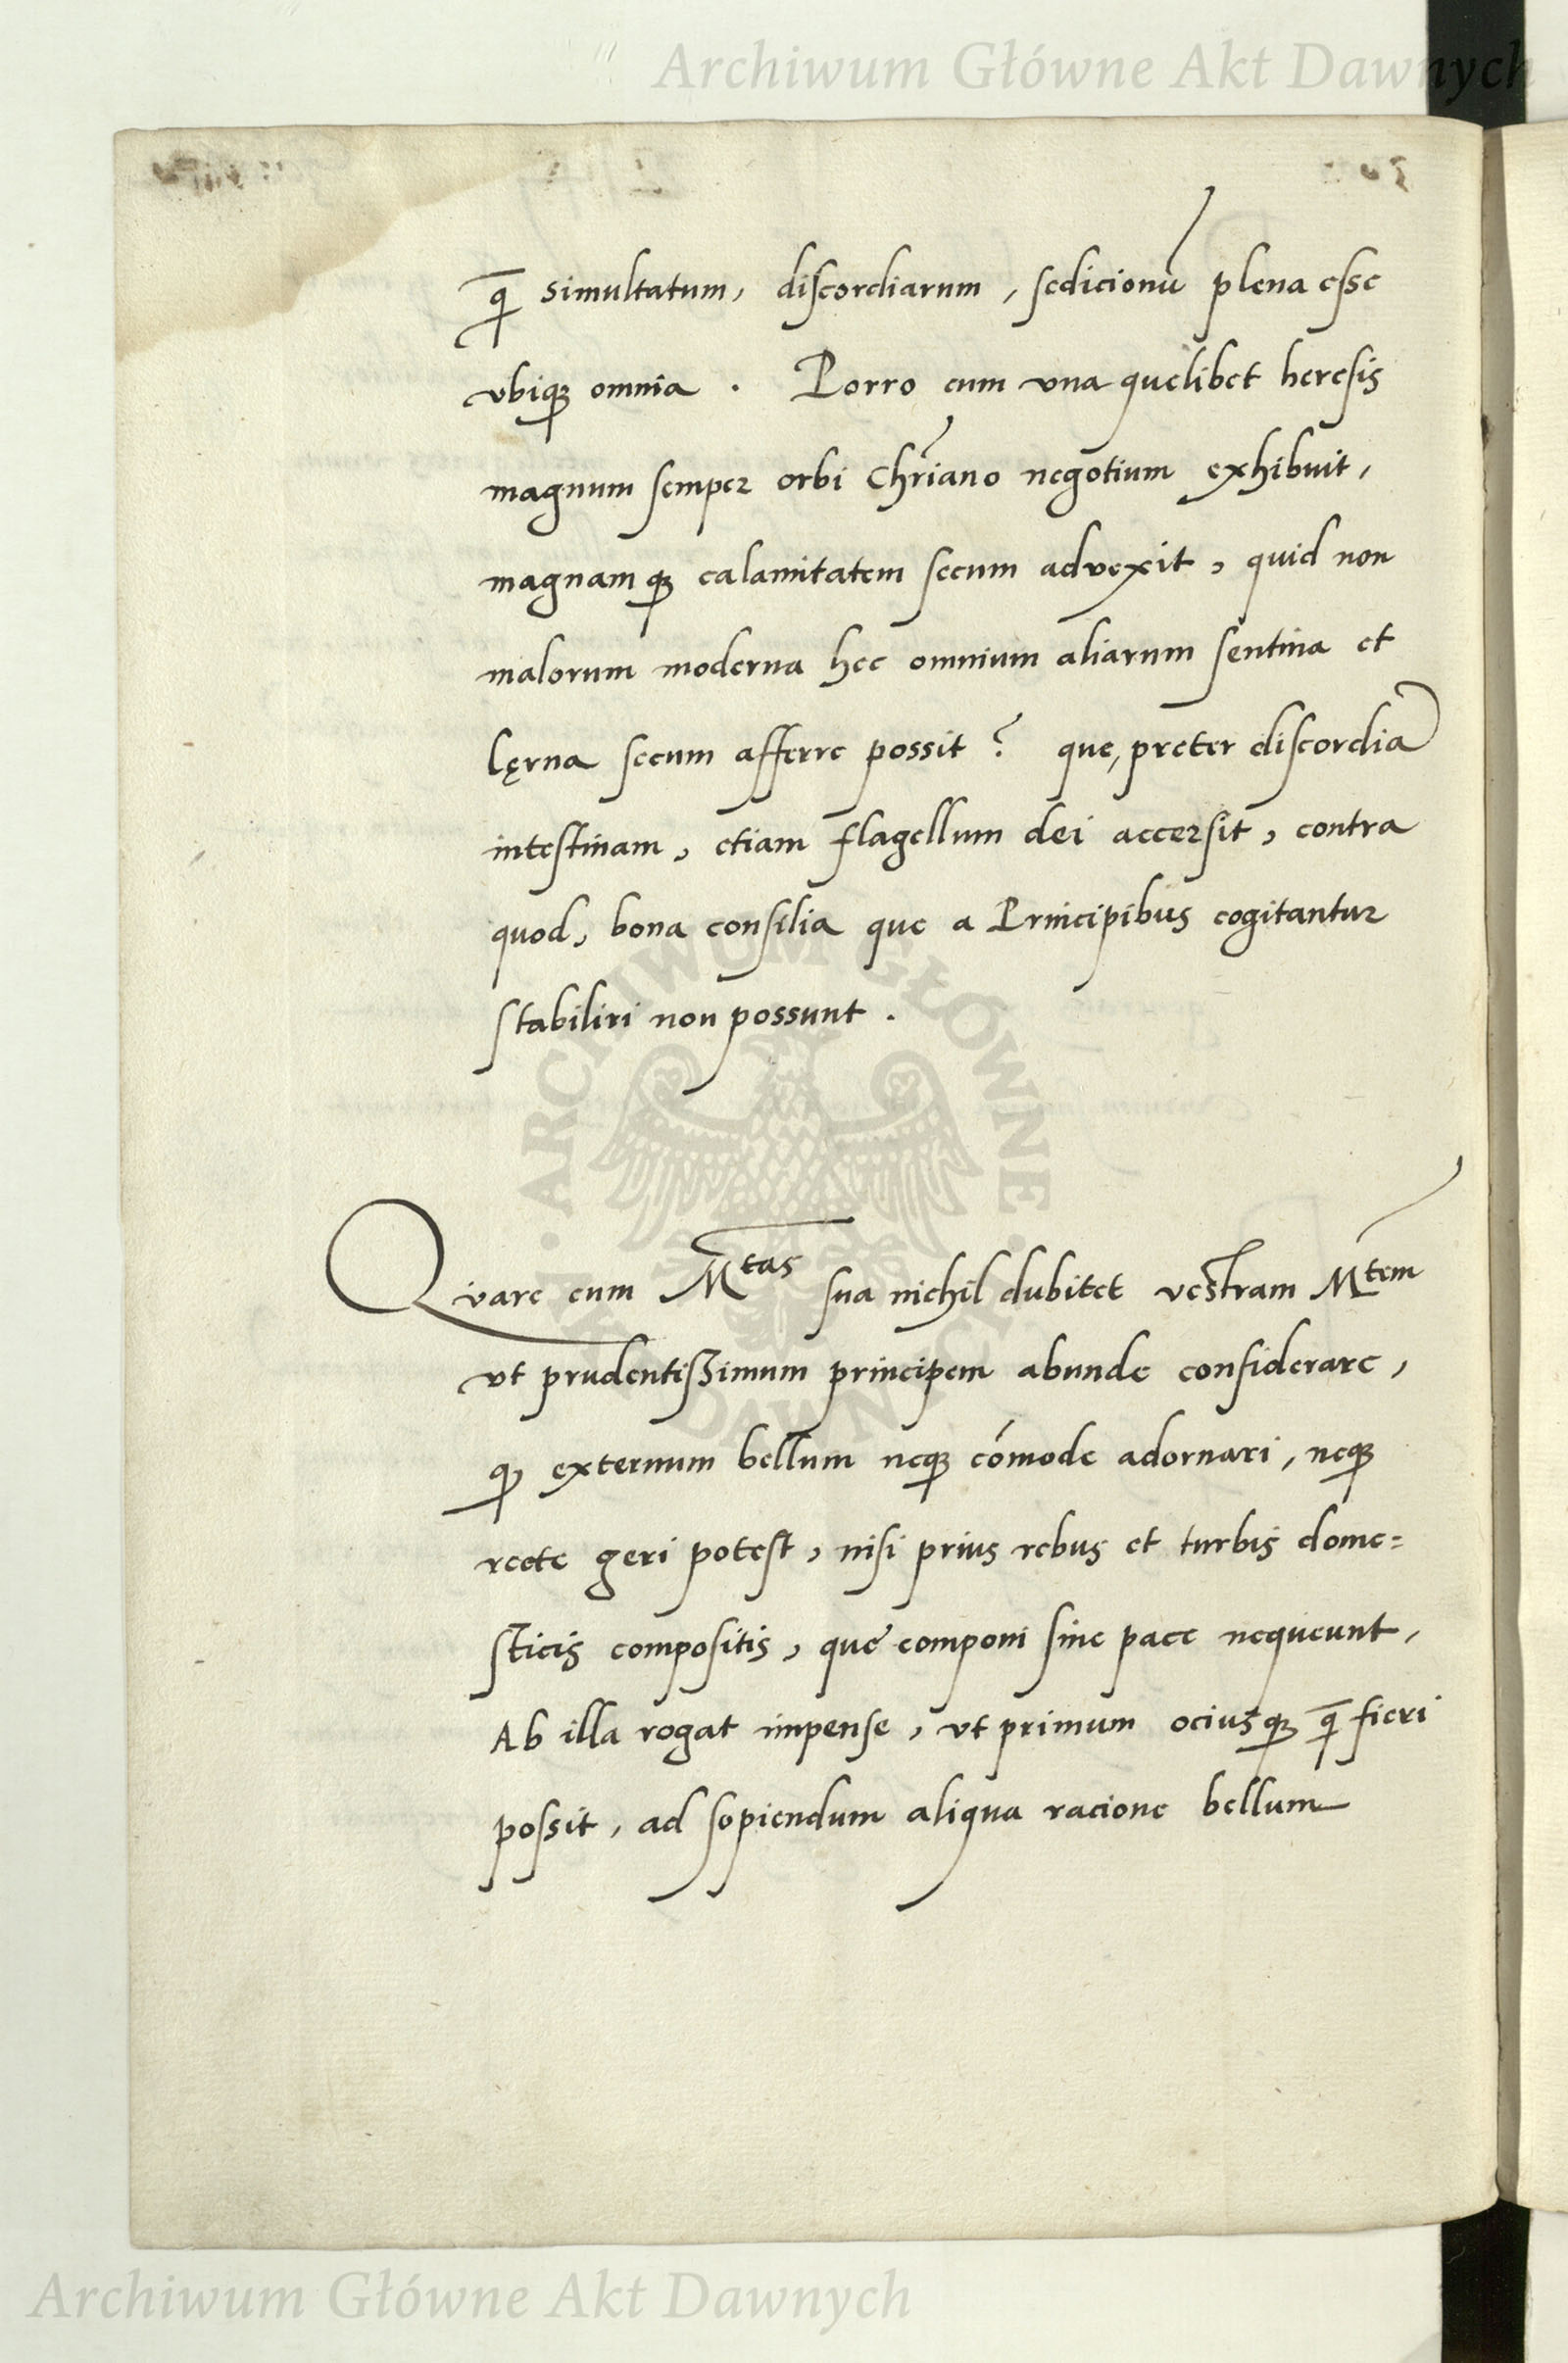 Archiwum Główne Akt Dawnych
q̄ simultatum, discordiarum, sedicionū plena esse
vbiq; omnia. Porro cum vna quelibet heresis
magnum semper orbi Chr̄iano negotium exhibuit,
magnamq; calamitatem secum advexit, quid non
malorum moderna hec omnium aliarum sentina et
lęrna secum afferre possit? que, preter discordiā
intestinam, etiam flagellum dei accersit, contra
quod, bona consilia que a Principibus cogitantur
stabiliri non possunt.
Qvare cum Mtas sua nichil dubitet vestram Mtem
vt prudentissimum principem abunde considerare,
q; externum bellum neq; com̄ode adornari, neq;
recte geri potest, nisi prius rebus et turbis dome=
sticis compositis, que componi sine pace nequeunt,
Ab illa rogat impense, vt primum ociusq; q̄ fieri
possit, ad sopiendum aliqua racione bellum
ARCHIWUM GŁÓWNE AKT DAWNYCH
Archiwum Główne Akt Dawnych